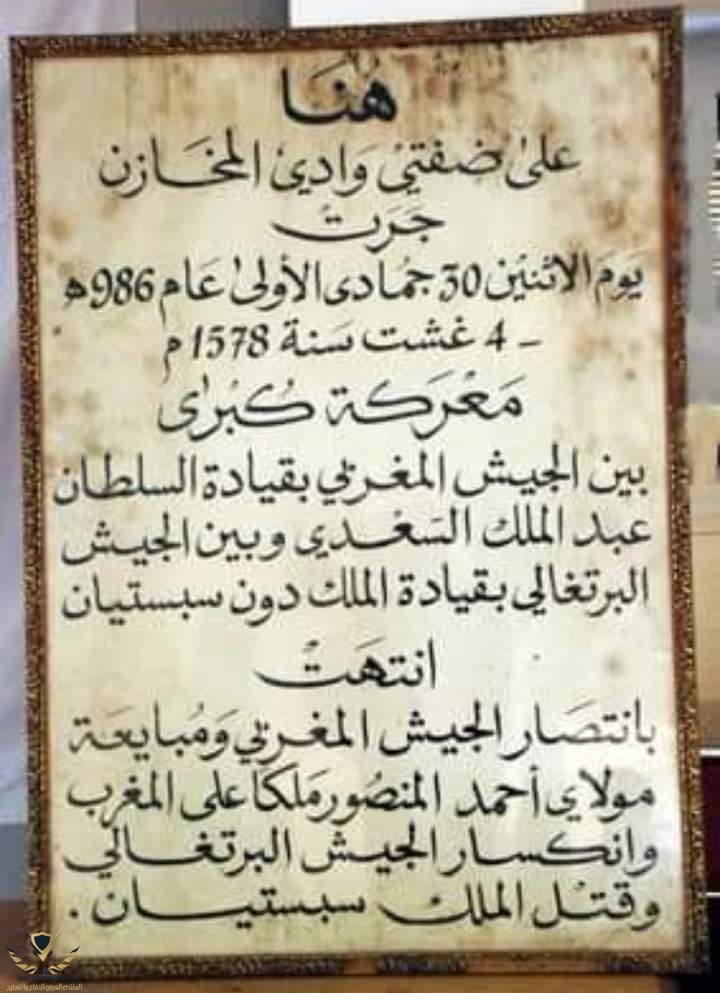 هُنَا
على ضفتي وَادي المخَازن
جَرَتْ
يَومَ الاثنين 30 جمُادى الأولى عَام 986 ه
- 4 غشت سَنة 1578 م
مَعْرَكة كُبْرى
بين الجيش المغربي بقيادة السلطان
عبد الملك السَعْدي وبين الجيش
البرتغالي بقيادة الملك دون سبستيان
انتهَت
بانتصَار الجيش المغربي وَمُبايعَة
مولاي أحمد المنصُور مَلكًا على المغرب
وانكسار الجيش البرتغالي
وقتْل الملك سبستيان .
المنتدى العربي للدفاع والتسليح